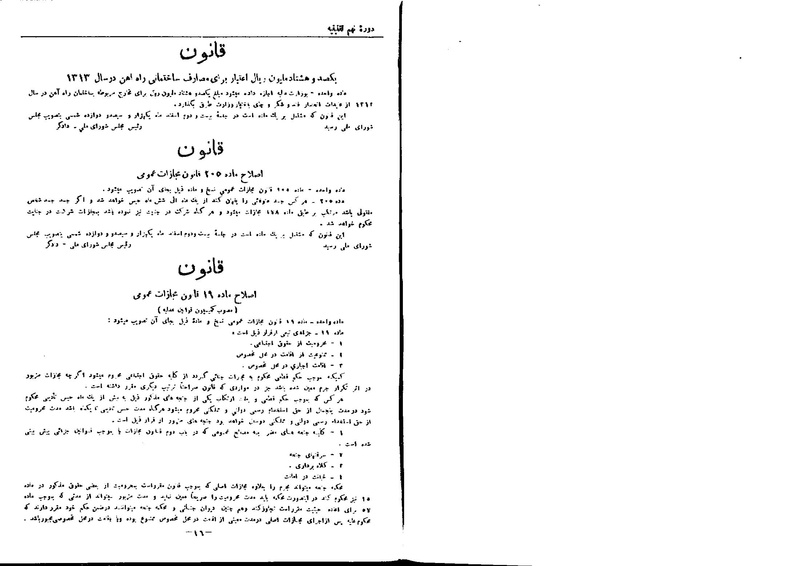 دورهٔ نهم تقنینیه
قانون
یکصد و هشتاد ملیون ریال اعتبار برای مصارف ساختمانی راه آهن در سال ۱۳۱۳
ماده واحده - بوزارت مالیه اجازه داده میشود مبلغ یکصد و هشتاد ملیون ریال برای مخارج مربوطه بساختمان راه آهن در سال
۱۳۱۳ از عایدات انحصار قند و شکر و چای باختیار وزارت طرق بگذارد .
این قانون که مشتمل بر یک ماده است در جلسهٔ بیست و دوم اسفند ماه یکهزار و سیصد و دوازده شمسی بتصویب مجلس
شورای ملی رسید رئیس مجلس شورای ملی - دادگر
قانون
اصلاح ماده ۲۰۵ قانون مجازات عمومی
ماده واحده - ماده ۲۰۵ قانون مجازات عمومی نسخ و ماده ذیل بجای آن تصویب میشود .
ماده ۲۰۵ - هر کس جسد مقتولی را پنهان کند از یک ماه الی شش ماه حبس خواهد شد و اگر جسد شخص
مقتولی باشد مرتکب بر طبق ماده ۱۷۸ مجازات میشود و هر گاه شرکت در جنایت نیز نموده باشد بمجازات شرکت در جنایت
محکوم خواهد شد .
این قانون که مشتمل بر یک ماده است در جلسهٔ بیست و دوم اسفند ماه یکهزار و سیصد و دوازده شمسی بتصویب مجلس
شورای ملی رسید رئیس مجلس شورای ملی - دادگر
قانون
اصلاح ماده ۱۹ قانون مجازات عمومی
( مصوب کمیسیون قوانین عدلیه )
ماده واحده - ماده ۱۹ قانون مجازات عمومی نسخ و مادهٔ ذیل بجای آن تصویب میشود :
ماده ۱۹ - جزاهای تبعی از قرار ذیل است :
۱ - محرومیت از حقوق اجتماعی .
۲ - ممنوعیت از اقامت در محل مخصوص
۳ - اقامت اجباری در محل مخصوص .
کسیکه موجب حکم قطعی محکوم به مجازات جنائی گردد از کلیه حقوق اجتماعی محروم میشود اگر چه مجازات مزبور
در اثر تکرار جرم معین شده باشد جز در مواردی که قانون صراحتاً ترتیب دیگری مقرر داشته است .
هر کس که بموجب حکم قطعی و بعلت ارتکاب یکی از جنحه های مذکور ذیل به بیش از یک ماه حبس تأدیبی محکوم
شود در مدت پنجسال از حق استخدام رسمی دولتی و مملکتی محروم میشود هر گاه مدت حبس تأدیبی تا یکماه باشد مدت محرومیت
از حق استخدام رسمی دولتی و مملکتی دو سال خواهد بود جنحه های مزبور از قرار ذیل است .
۱ - کلیه جنحه های مضر به مصالح عمومی که در باب دوم قانون مجازات یا بموجب قوانین جزائی پیش بینی
شده است .
۲ - سرقتهای جنحه
۳ - کلاه برداری .
۴ - خیانت در امانت
محکمه جنحه میتواند مجرم را بعلاوه مجازات اصلی که بموجب قانون مقرر است بمحرومیت از بعضی حقوق مذکور در ماده
۱۵ نیز محکوم کند در اینصورت محکمه باید مدت محرومیت را صریحاً معین نماید و مدت مزبور نمیتواند از مدتی که بموجب ماده
۵۷ برای اعاده حیثیت مقرر است تجاوز کند و هم چنین دیوان جنائی و محکمه جنحه میتوانند در ضمن حکم خود مقرر دارند که
محکوم علیه پس از اجرای مجازات اصلی در مدت معینی از اقامت در محل مخصوص ممنوع بوده و یا باقامت در محل مخصوصی مجبور باشد .
-۱۶-